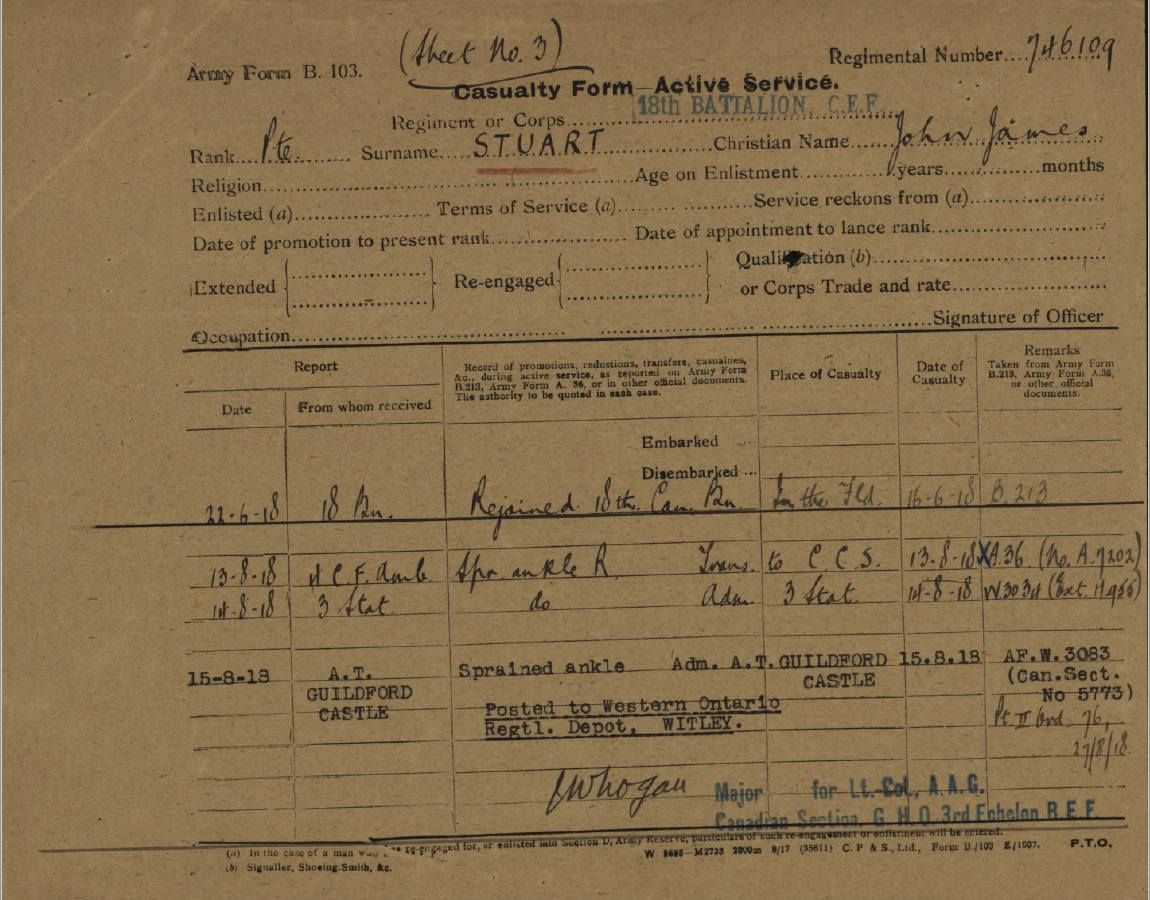 (Sheet No. 3)
Army Form B. 103.
Regimental Number....746109
Casualty Form—Active Service.
Regiment or Corps 18th BATTALION, C.E.F.
Rank Pte. Surname STUART Christian Name John James
Religion Age on Enlistment years months
Enlisted (a) Terms of Service (a) Service reckons from (a)
Date of promotion to present rank Date of appointment to lance rank
Extended Re-engaged Qualification (b)
or Corps Trade and rate
Occupation Signature of Officer
Report
Date
From whom received
Record of promotions, reductions, transfers, casualties,
&c., during active service, as reported on Army Form
B.213, Army Form A. 36, or in other official documents.
The authority to be quoted in each case.
Place of Casualty
Date of
Casualty
Remarks
Taken from Army Form
B.213, Army Form A.36,
or other official
documents.
Embarked ...
Disembarked ...
22-6-18 18 Bn. Rejoined 18th. Can. Bn. In the Fld. 16-6-18 B.213
13-8-18 4 C.F. Amb Spr. ankle R. Trans. to C.C.S. 13-8-18 X A.36 (No. A.7202)
14-8-18 3 Stat. do Adm. 3 Stat. 14-8-18 W3034
15-8-18 A.T. GUILDFORD CASTLE Sprained ankle Adm. A.T. GUILDFORD CASTLE 15.8.18 AF.W.3083
(Can.Sect.
No 5773)
Posted to Western Ontario
Regtl. Depot, WITLEY.
Pt. II Ord. 76,
27/8/18.
Major for Lt.-Col., A.A.G.
Canadian Section, G.H.Q. 3rd Echelon B.E.F.
(a) In the case of a man who has re-engaged for, or enlisted into Section D, Army Reserve, particulars of such re-engagement or enlistment will be entered.
(b) Signaller, Shoeing-Smith, &c.
M2733 2000m 9/17 (35611) C. P & S., Ltd., Form B./103 E/1607. P.T.O.